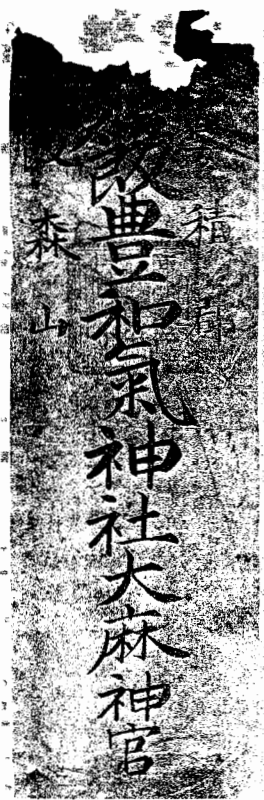 積郡
飯豊和氣神社大麻神官
森山